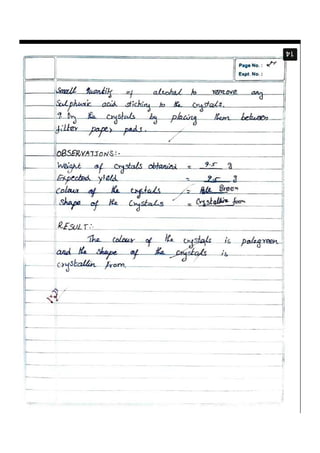 14
Page No. :
Expt. No. :
Small quantity of alcohol to remove any
Sulphuric acid sticking to the Crystals.
9. Dry the crystals by placing them between
filter paper pads.
OBSERVATIONS:-
Weight of Crystals obtained = 9.5 g
Expected yield = 9.5 g
Colour of the crystals = Pale Green
Shape of the Crystals = Crystalline from
RESULT:-
The colour of the crystals is palegreen
and the shape of the crystals is
crystallin from.